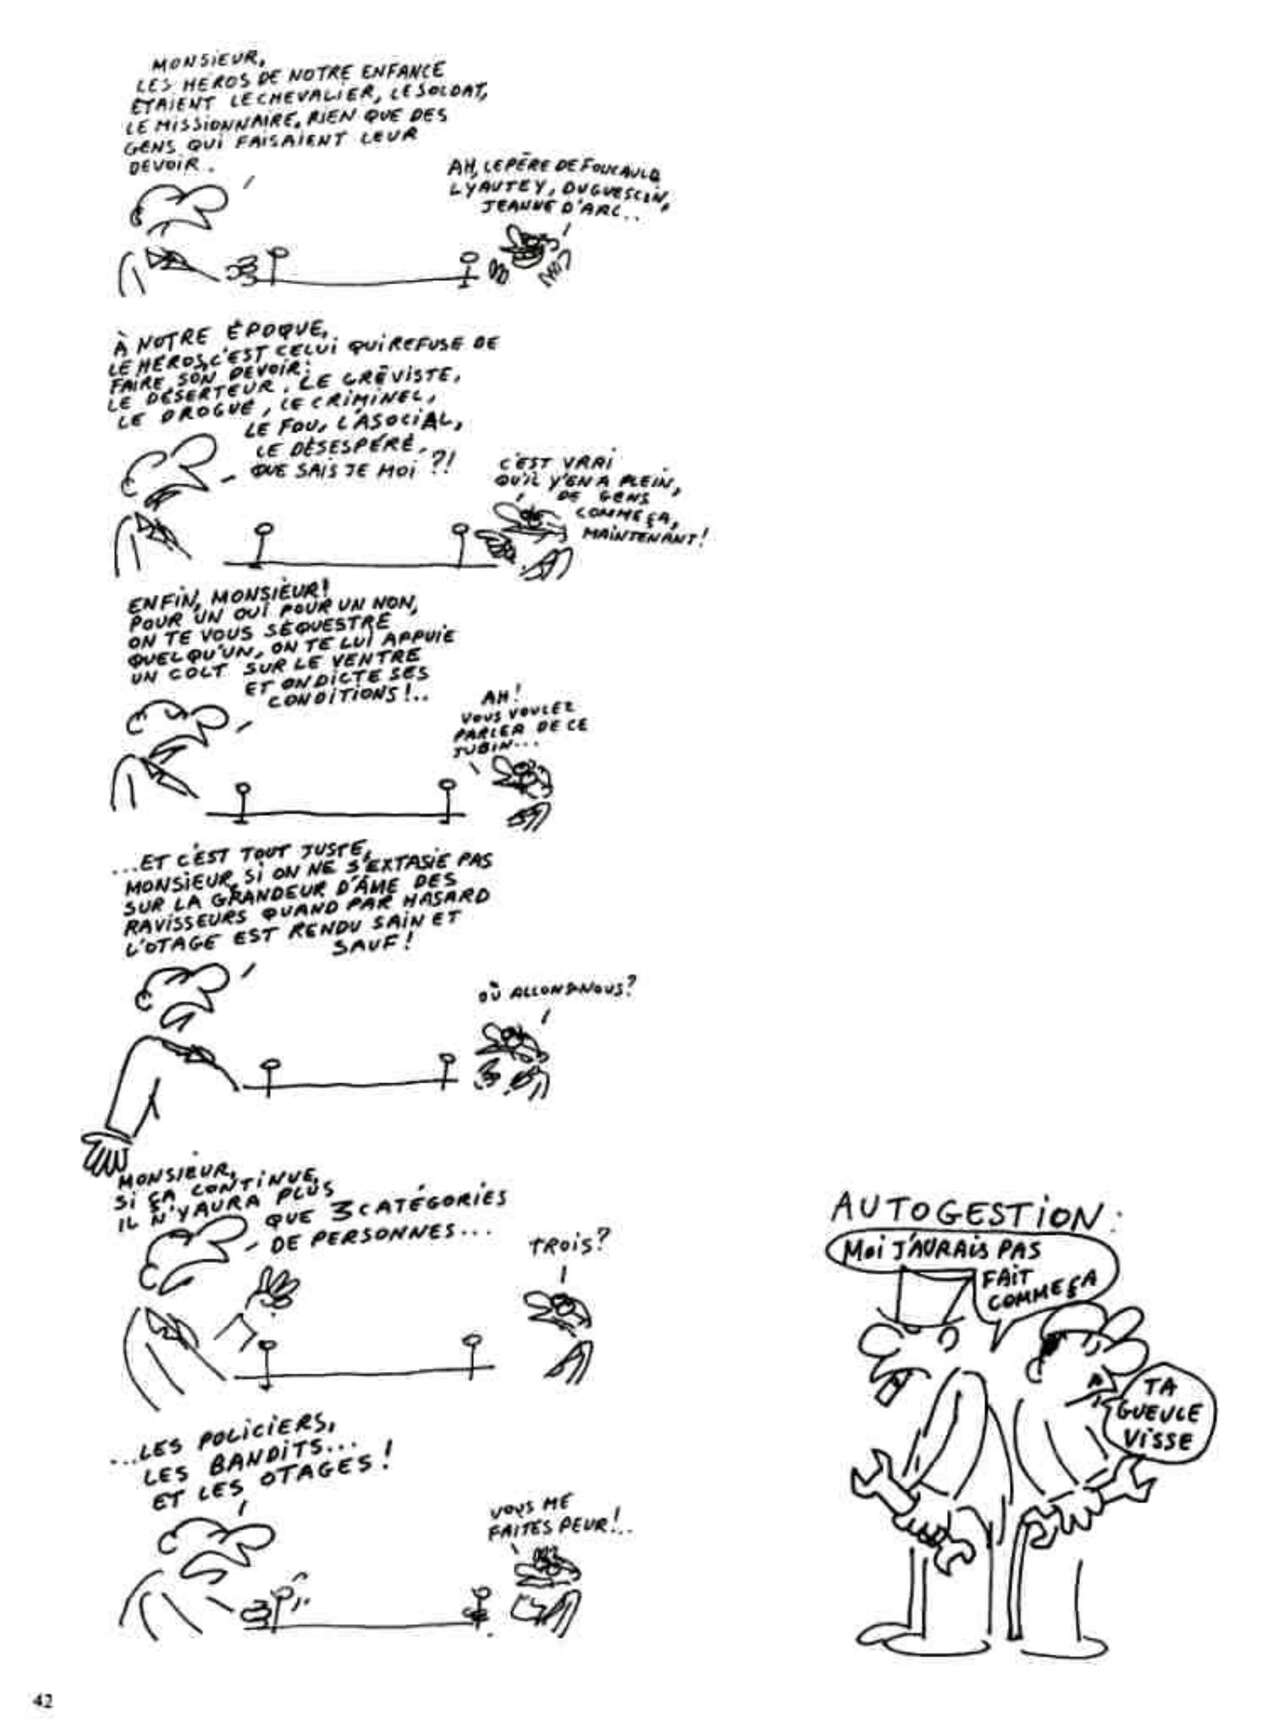 MONSIEUR,
LES HÉROS DE NOTRE ENFANCE
ÉTAIENT LE CHEVALIER, LE SOLDAT,
LE MISSIONNAIRE, RIEN QUE DES
GENS QUI FAISAIENT LEUR
DEVOIR.
AH, LE PÈRE DE FOUCAULD
LYAUTEY, DUGUESCLIN,
JEANNE D'ARC..
À NOTRE ÉPOQUE,
LE HÉROS, C'EST CELUI QUI REFUSE DE
FAIRE SON DEVOIR:
LE DÉSERTEUR, LE GRÉVISTE,
LE DROGUÉ, LE CRIMINEL,
LE FOU, L'ASOCIAL,
LE DÉSESPÉRÉ,
QUE SAIS JE MOI ?!
C'EST VRAI
QU'IL Y'EN A PLEIN,
DE GENS
COMME ÇA,
MAINTENANT!
ENFIN, MONSIEUR!
POUR UN OUI POUR UN NON,
ON TE VOUS SÉQUESTRE
QUELQU'UN, ON TE LUI APPUIE
UN COLT SUR LE VENTRE
ET ON DICTE SES
CONDITIONS!..
AH!
VOUS VOULEZ
PARLER DE CE
JUBIN...
...ET C'EST TOUT JUSTE,
MONSIEUR, SI ON NE S'EXTASIE PAS
SUR LA GRANDEUR D'ÂME DES
RAVISSEURS QUAND PAR HASARD
L'OTAGE EST RENDU SAIN ET
SAUF!
OÙ ALLONS-NOUS?
MONSIEUR,
SI ÇA CONTINUE,
IL N'Y AURA PLUS
QUE 3 CATÉGORIES
DE PERSONNES...
TROIS?
...LES POLICIERS,
LES BANDITS...
ET LES OTAGES!
VOUS ME
FAITES PEUR!..
AUTOGESTION:
MOI J'AURAIS PAS
FAIT
COMME ÇA
TA
GUEULE
VISSE
42